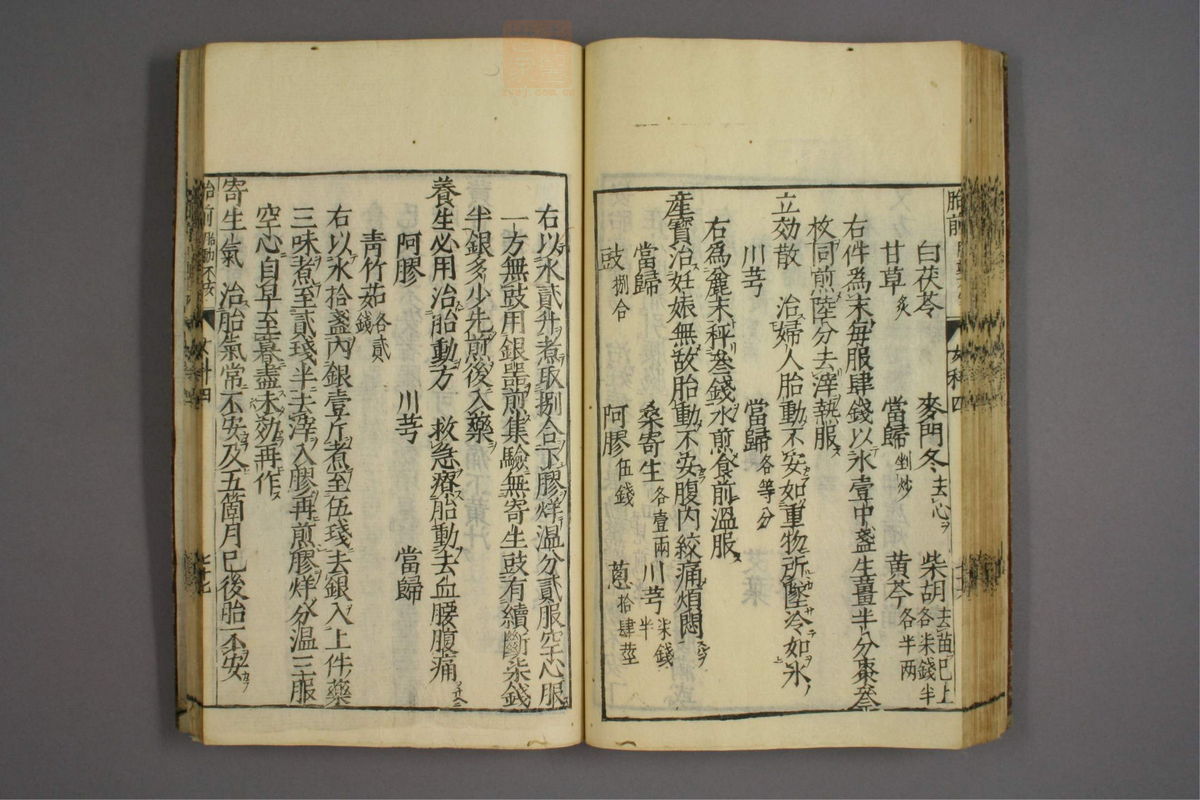 胎前
女科四
白茯苓 麥門冬去心 柴胡去苗已上各柒錢半
甘草炙 當歸剉炒 黃芩各半两
右件為末每服肆錢以水壹中盞生薑半分棗叄
枚同煎陸分去滓熱服
立効散 治婦人胎動不安如重物所墜冷如氷
川芎 當歸各等分
右為麁末秤叄錢水煎食前溫服
産寶治妊娠無故胎動不安腹內絞痛煩悶
當歸 桑寄生各壹兩 川芎柒錢半
豉捌合 阿膠伍錢 葱拾肆莖
右以水貳升煮取捌合下膠烊温分貳服空心服
一方無豉用銀器煎集驗無寄生豉有續斷柒錢
半銀多少先煎後入藥
養生必用治胎動方 救急療胎動去血腰腹痛
阿膠 川芎 當歸
青竹茹各貳錢
右以水拾盞內銀壹斤煮至伍琖去銀入上件藥
三味煮至貳琖半去滓入膠再煎膠烊分温三服
空心自早至暮盡未効再作
寄生氣 治胎氣常不安及五箇月已後胎不安
胎前 胎動不安
女科四